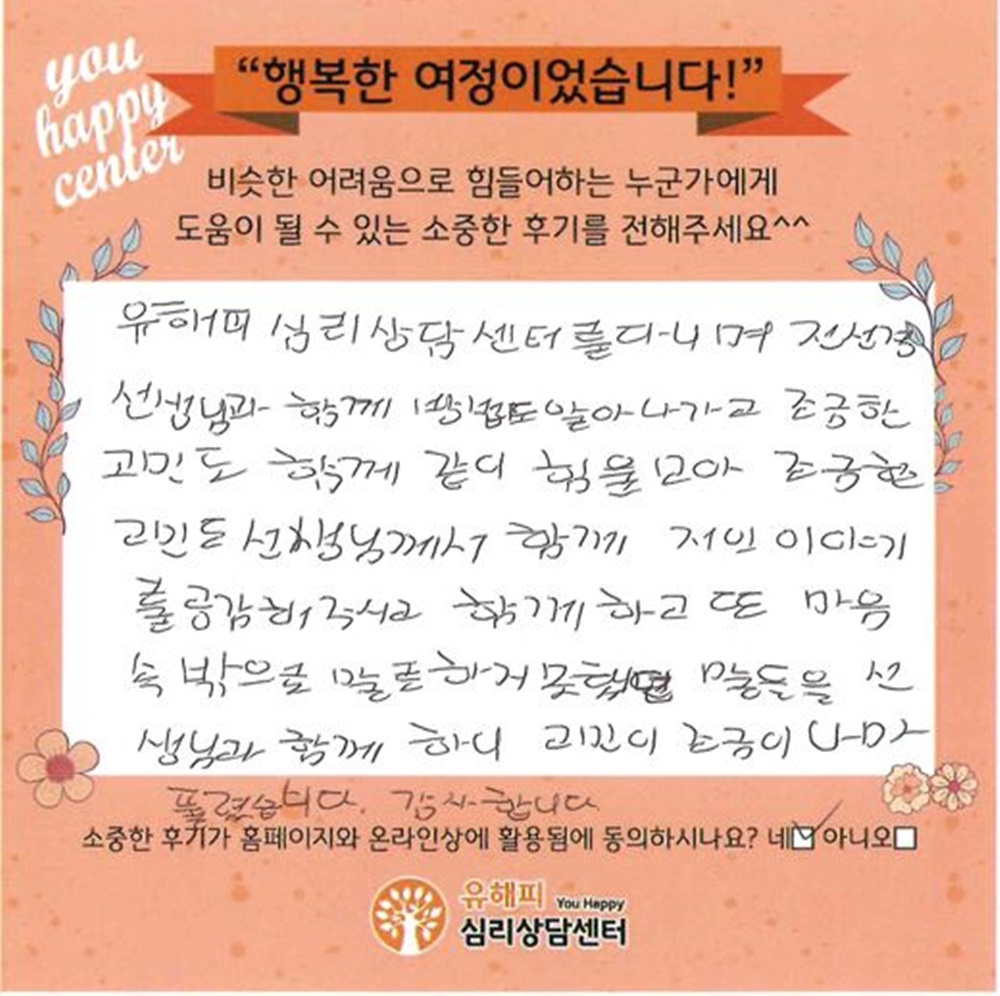 you
happy
center
“행복한 여정이었습니다!”
비슷한 어려움으로 힘들어하는 누군가에게
도움이 될 수 있는 소중한 후기를 전해주세요^^
유해피 심리상담센터를다니며 전선경
선생님과 함께 방법도알아나가고 조금한
고민도 함께 같이 힘을모아 조금한
고민도선생님께서 함께 저인이야기
를공감해주시고 함께하고 또 마음
속밖으로 말로하거못했 말들을 선
생님과 함께 하니 고민이 조금이나마
풀렸습니다. 감사합니다
소중한 후기가 홈페이지와 온라인상에 활용됨에 동의하시나요? 네☑ 아니오☐
유해피 You Happy
심리상담센터